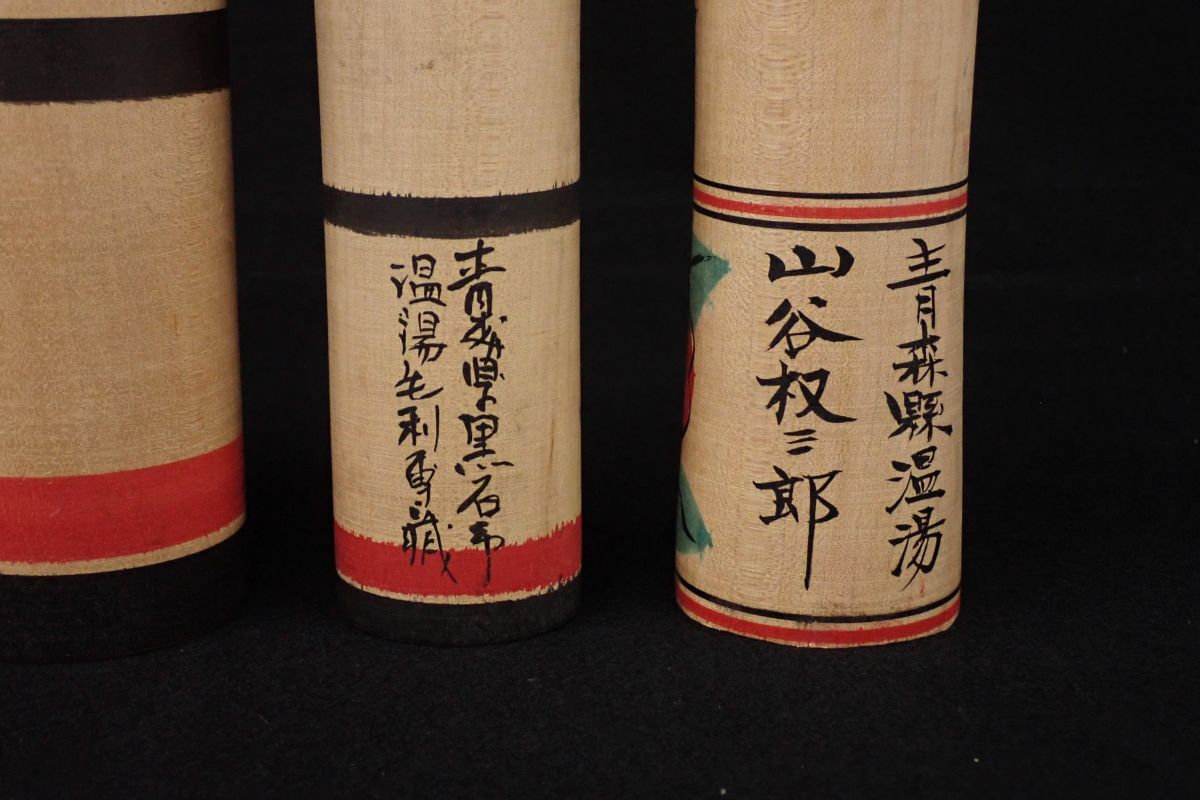 青森縣温湯
山谷权三郎
青森県黒石市
温湯毛利専蔵